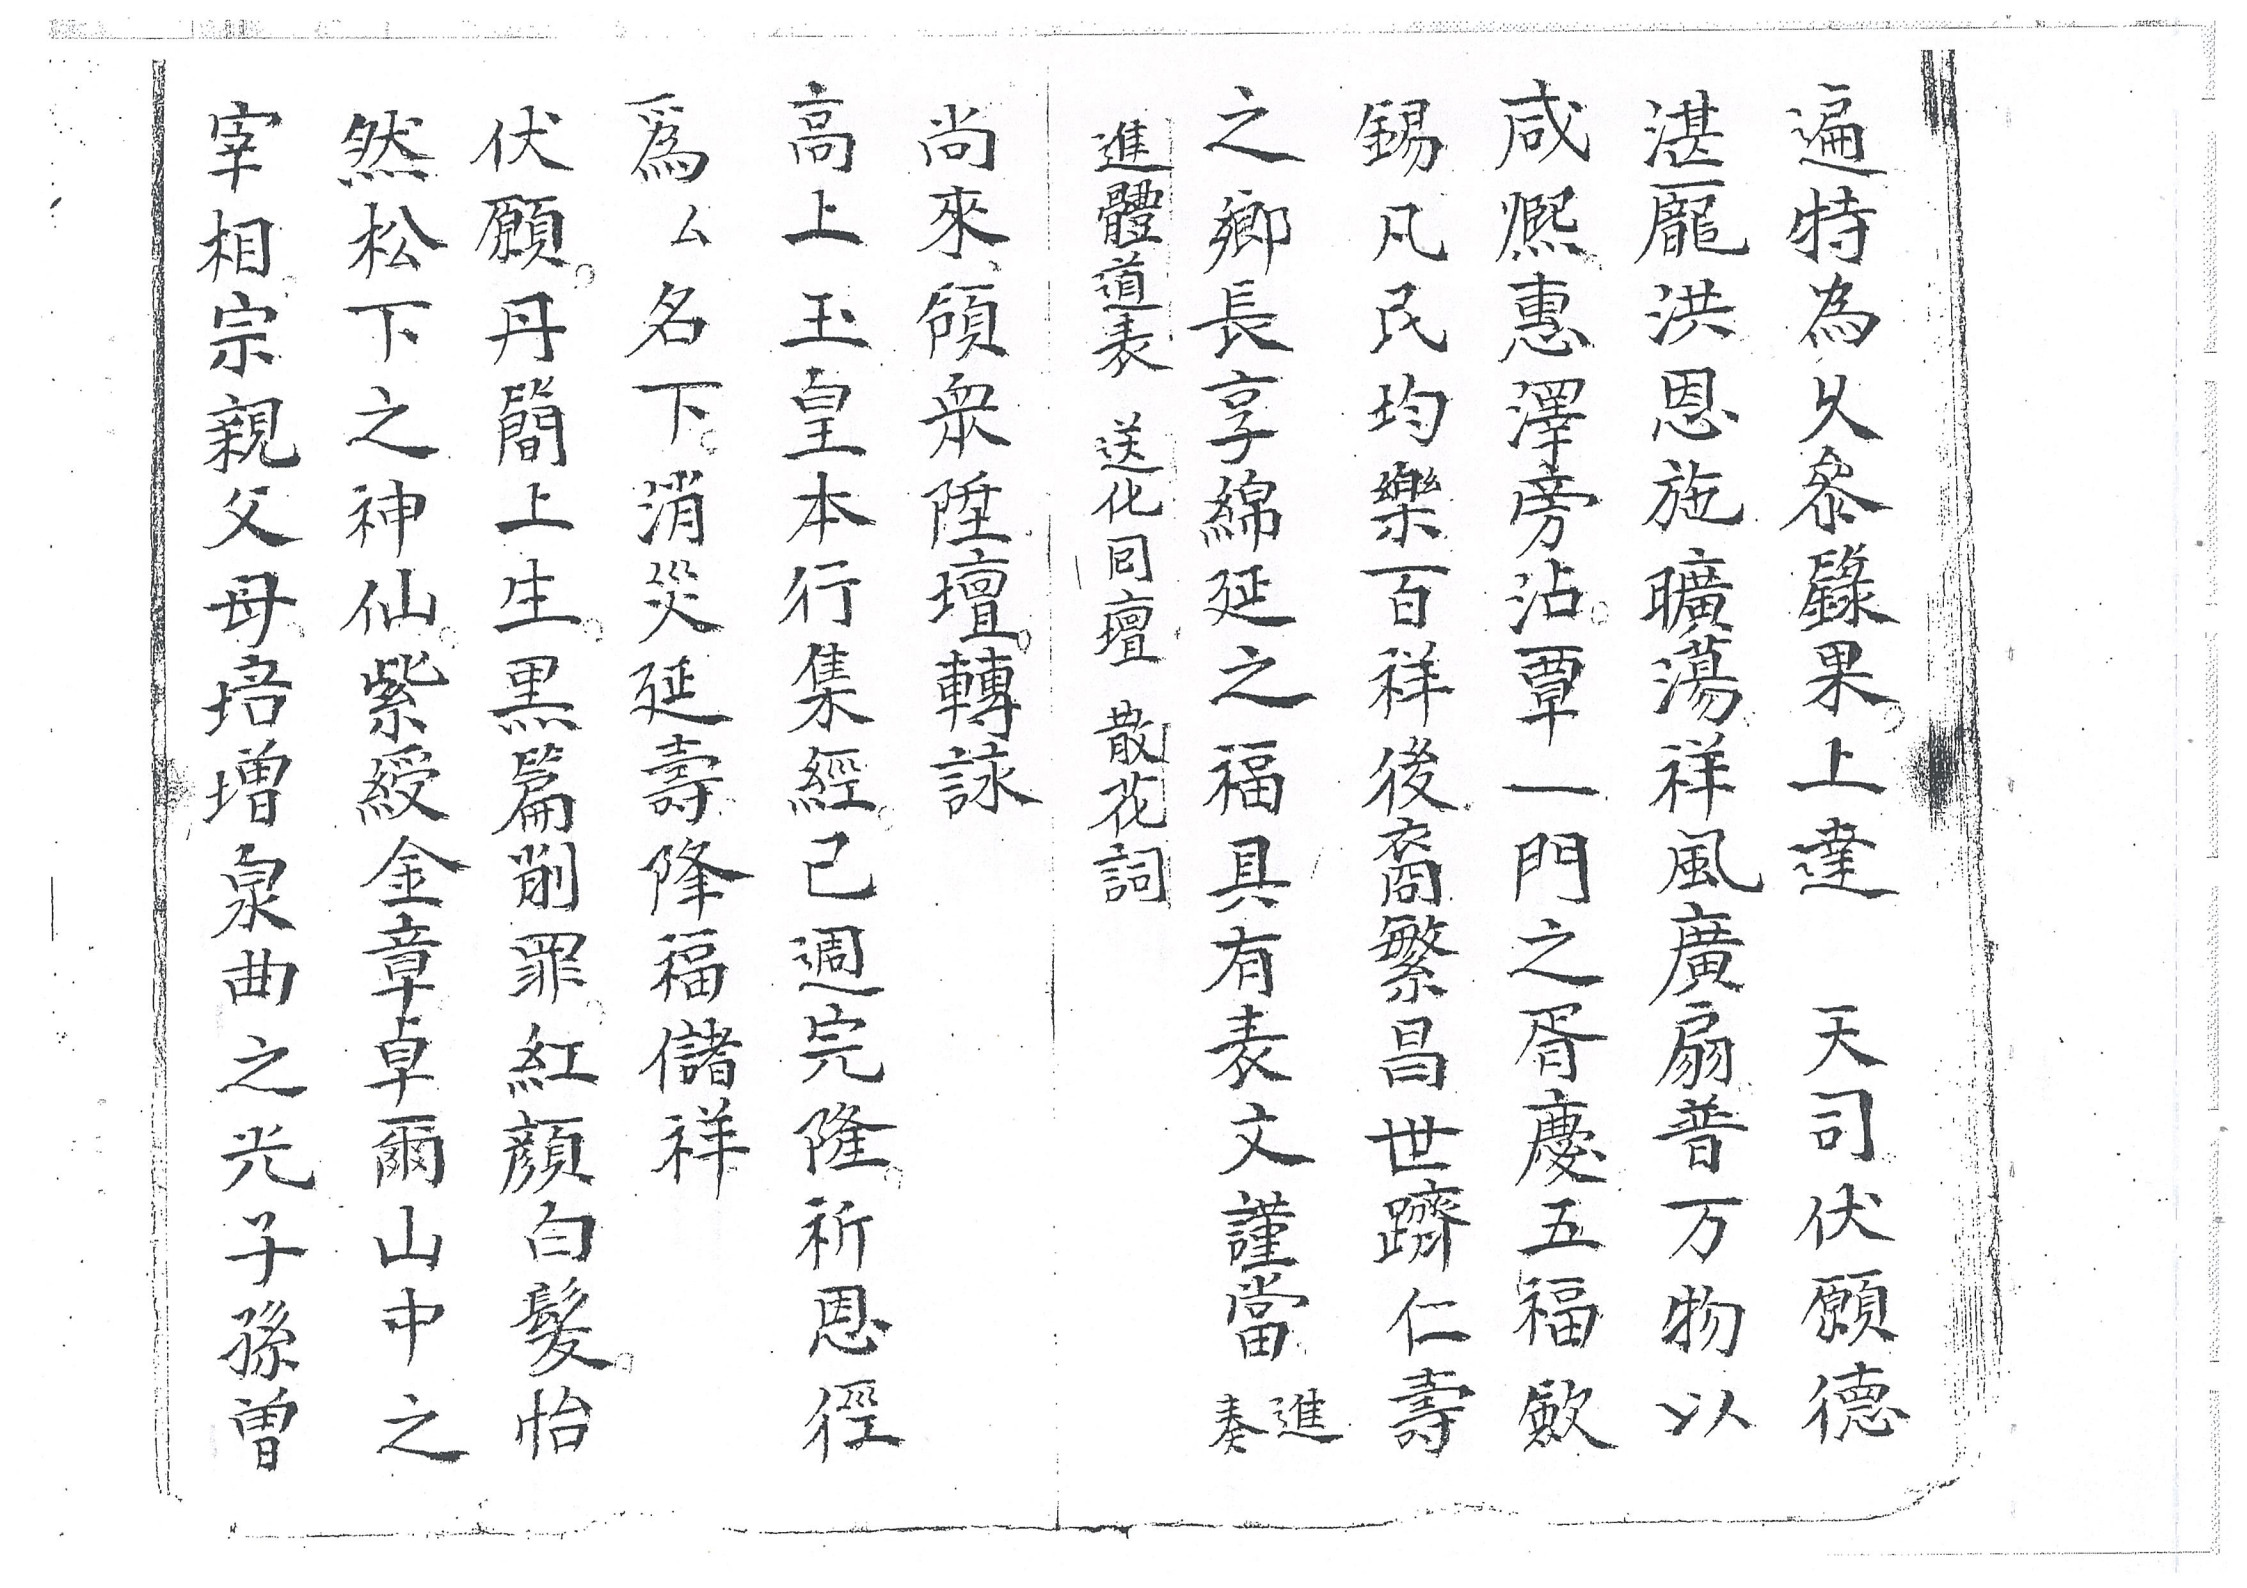 遍特為乆叅録果上達　天司伏願德
湛龎洪恩施曠蕩祥風廣扇普万物以
咸熈惠澤旁沾覃一門之胥慶五福歛
錫凡民均樂百祥後裔繁昌世躋仁壽
之鄉長享綿延之福具有表文謹當進奏
進體道表　送化回壇　散花詞
尚來領衆陞壇轉詠
高上玉皇本行集經已週完隆祈恩徑
爲ム名下消災延壽降福儲祥
伏願丹簡上生黑篇削罪紅顔白髮怡
然松下之神仙紫綬金章卓爾山中之
宰相宗親父母培增泉曲之光子孫曽